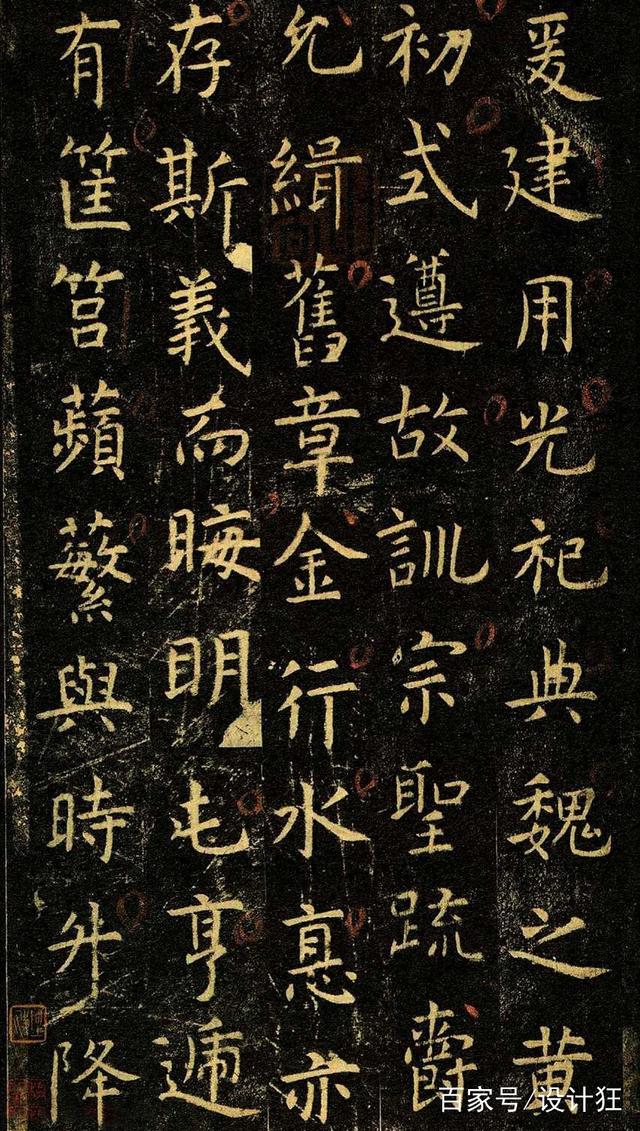 爰建用光祀典魏之黄
初式遵故訓宗聖疏爵
允緝舊章金行水悳亦
存斯義而晦明屯亨遞
有筐筥蘋蘩與時升降
百家号/设计狂